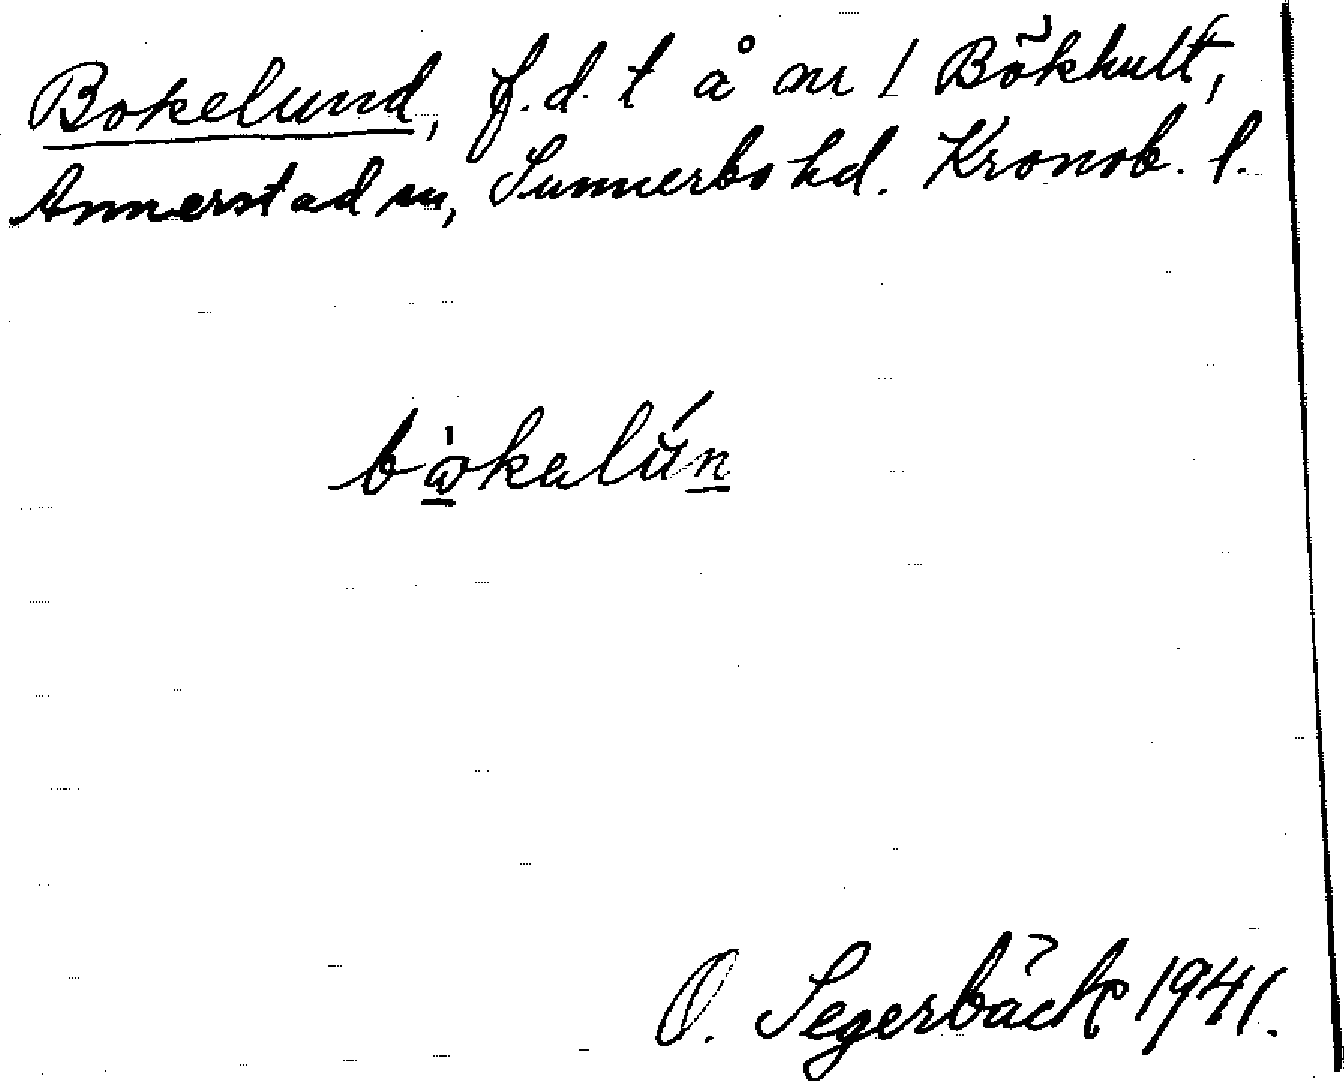 Bokelund, f.d. t å nr 1 Bökhult,
Annerstad sn, Sunnerbo hd. Kronob. l.
bàkalún
O. Segerbäck 1941.